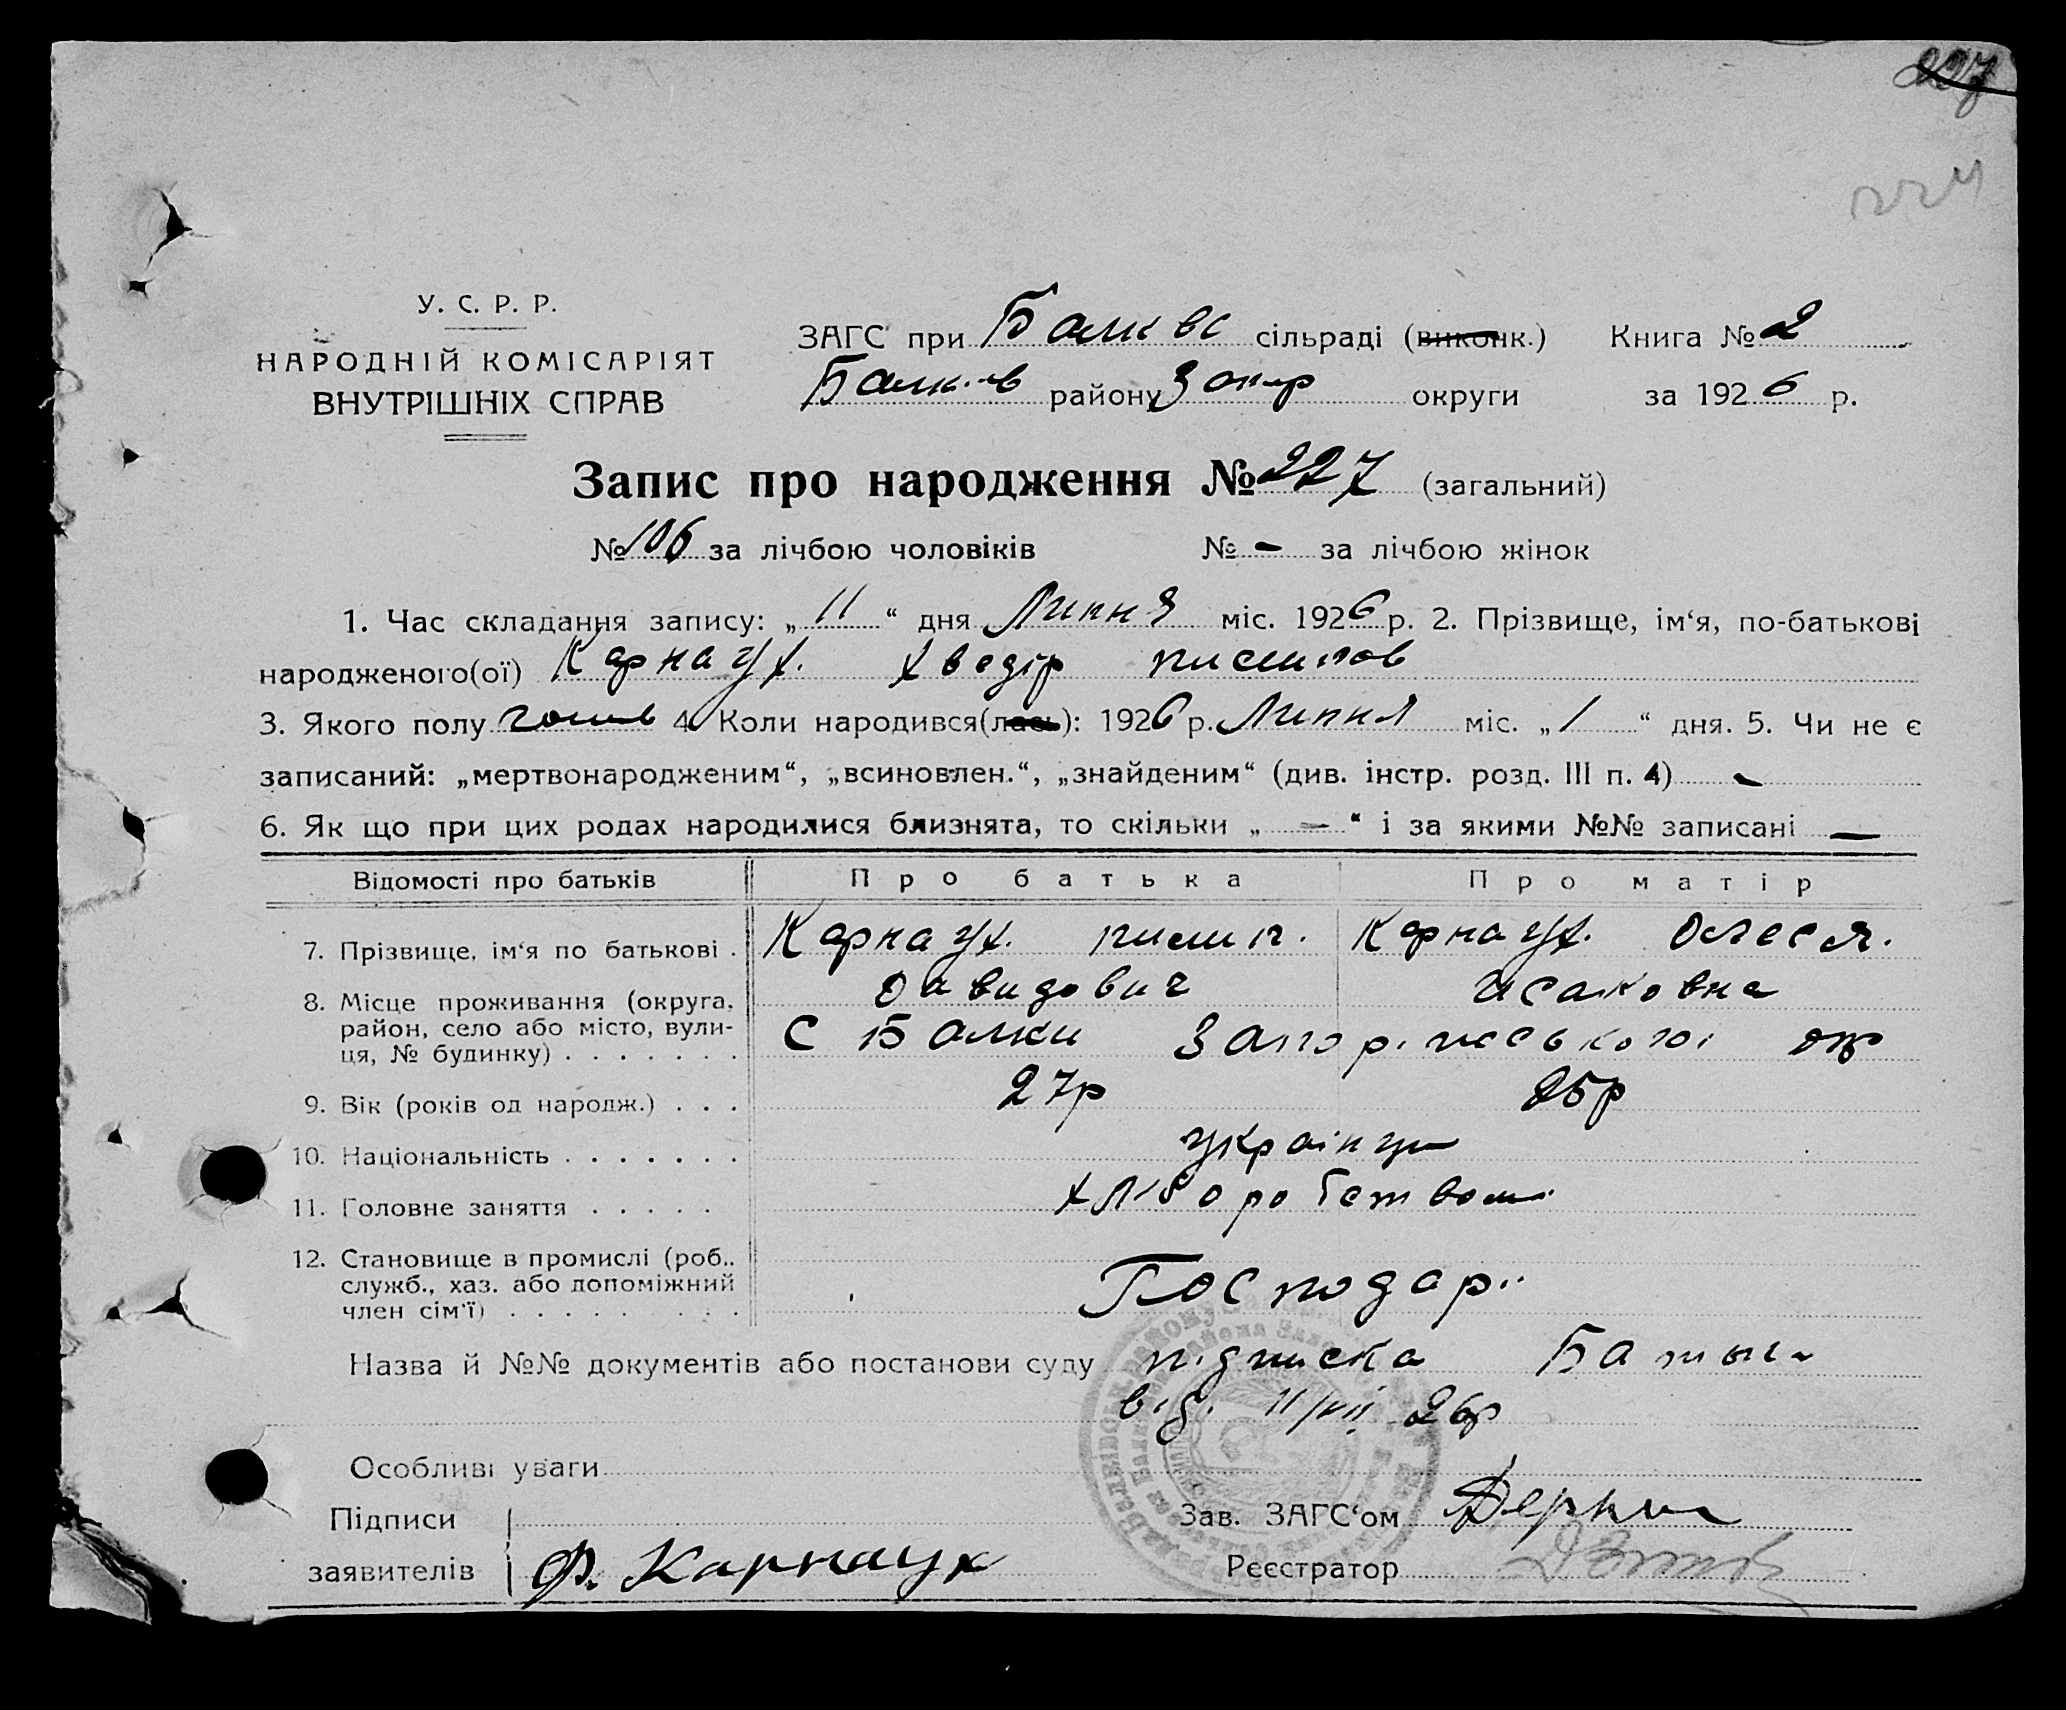 227
224
У. С. Р. Р.
НАРОДНІЙ КОМІСАРІЯТ
ВНУТРІШНІХ СПРАВ
ЗАГС при Балквс сільраді (виконк.) Книга № 2
Балків району Запор округи за 1926 р.
Запис про народження № 227 (загальний)
№ 106 за лічбою чоловіків № – за лічбою жінок
1. Час складання запису: „ 11 “ дня Липня міс. 1926 р. 2. Прізвище, ім‘я, по-батькові
народженого(ої) Карнаух. Хведір пилипов
3. Якого полу чолив 4. Коли народився(лась): 1926 р. Липня міс. „ 1 “ дня. 5. Чи не є
записаний: „мертвонародженим“, „всиновлен.“, „знайденим“ (див. інстр. розд. III п. 4) –
6. Як що при цих родах народилися близнята, то скільки „ – “ і за якими №№ записані —
Відомості про батьків Про батька Про матір
7. Прізвище, ім‘я по батькові . Карнаух. пилип. Карнаух. Олеся.
Давидович Исаковна
8. Місце проживання (округа,
район, село або місто, вули-
ця, № будинку) . . . . . . . С Балки Запоріжського окр
9. Вік (років од народж.) . . . 27р 25р
10. Національність . . . . . . . українці
11. Головне заняття . . . . . хліборобством
12. Становище в промислі (роб..
служб., хаз. або допоміжний
член сім‘ї) . . . . . . . . Господарі
Назва й №№ документів або постанови суду підписка Батька
від 11/VII 26р
Особливі уваги
Підписи Зав. ЗАГС‘ом
заявителів Ф. Карнаух Реєстратор